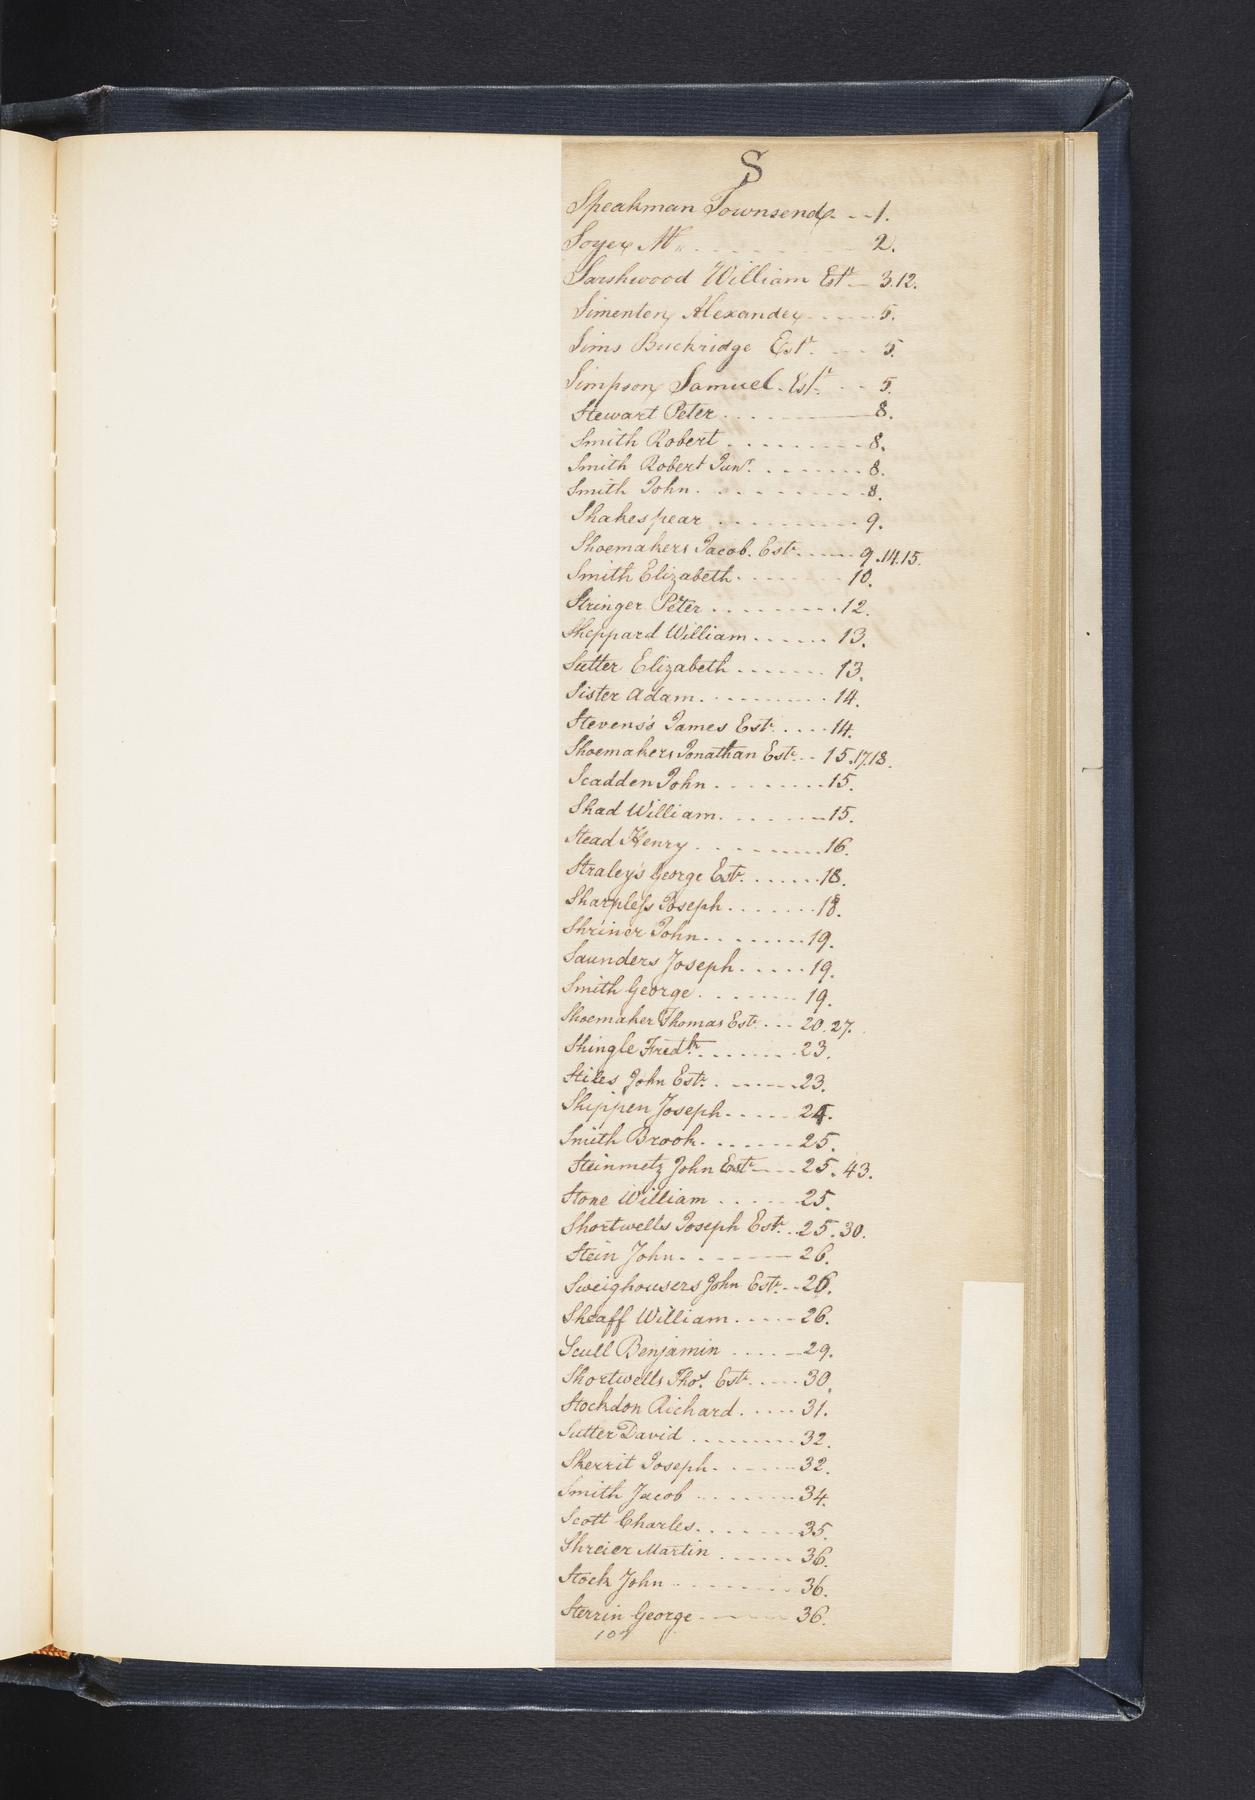 S
Speakman Townsend - - 1.
Soyer Mr. . . . . . 2.
Sarshwood William Estr. - 3.12.
Simenton Alexander - - - - - 5.
Sims Buckridge Estr. - - - 5.
Simpson Samuel. Estr. - - - 5.
Stewart Peter . . . - - - - 8.
Smith Robert . . . . . . . . . 8.
Smith Robert Junr. . . . . . . . 8.
Smith John . . . . . . . . . . 8.
Shakespear . . . . . . . . . . 9.
Shoemakers Jacob. Estr. . . . . . 9.14.15.
Smith Elizabeth . . . . . . . 10.
Stringer Peter . . . . . . . . . 12.
Sheppard William . . . . . . 13.
Sutter Elizabeth . . . . . . . 13.
Sister Adam . . . . . . . . . . 14.
Stevens's James Estr. . . . . 14.
Shoemakers Jonathan Estr. . . 15.17.18.
Scadden John . . . . . . . . . 15.
Shad William . . . . . . . . 15.
Stead Henry . . . . . . . . . . 16.
Straley's George Estr. . . . . . . 18.
Sharpless Joseph . . . . . . . 18.
Shriner John . . . . . . . . . 19.
Saunders Joseph . . . . . 19.
Smith George . . . . . . . . 19.
Shoemaker Thomas Estr. . . . 20.27.
Shingle Fredk. . . . . . . . . 23.
Stiles John Estr. . - - - - - 23.
Shippen Joseph . . . . . . 24.
Smith Brook . . . . . . . . 25.
Steinmetz John Estr. - - - 25.43.
Stone William . . . . . . 25.
Shortwells Joseph Estr. . . 25.30.
Stein John . . - - - - - 26.
Sweighousers John Estr. - - 26.
Sheaff William . . . . . 26.
Scull Benjamin . . . . . 29.
Shortwells Thos. Estr. . . . . 30.
Stockdon Richard . . . . . 31.
Sutter David . . . . . . . . . 32.
Skerrit Joseph . - - - - - 32.
Smith Jacob . . . . . . . . . 34.
Scott Charles . . . . . . . . 35.
Shreier Martin . . . . . . 36.
Stock John - - - - - - - - 36.
Sterrin George - - - - - 36.